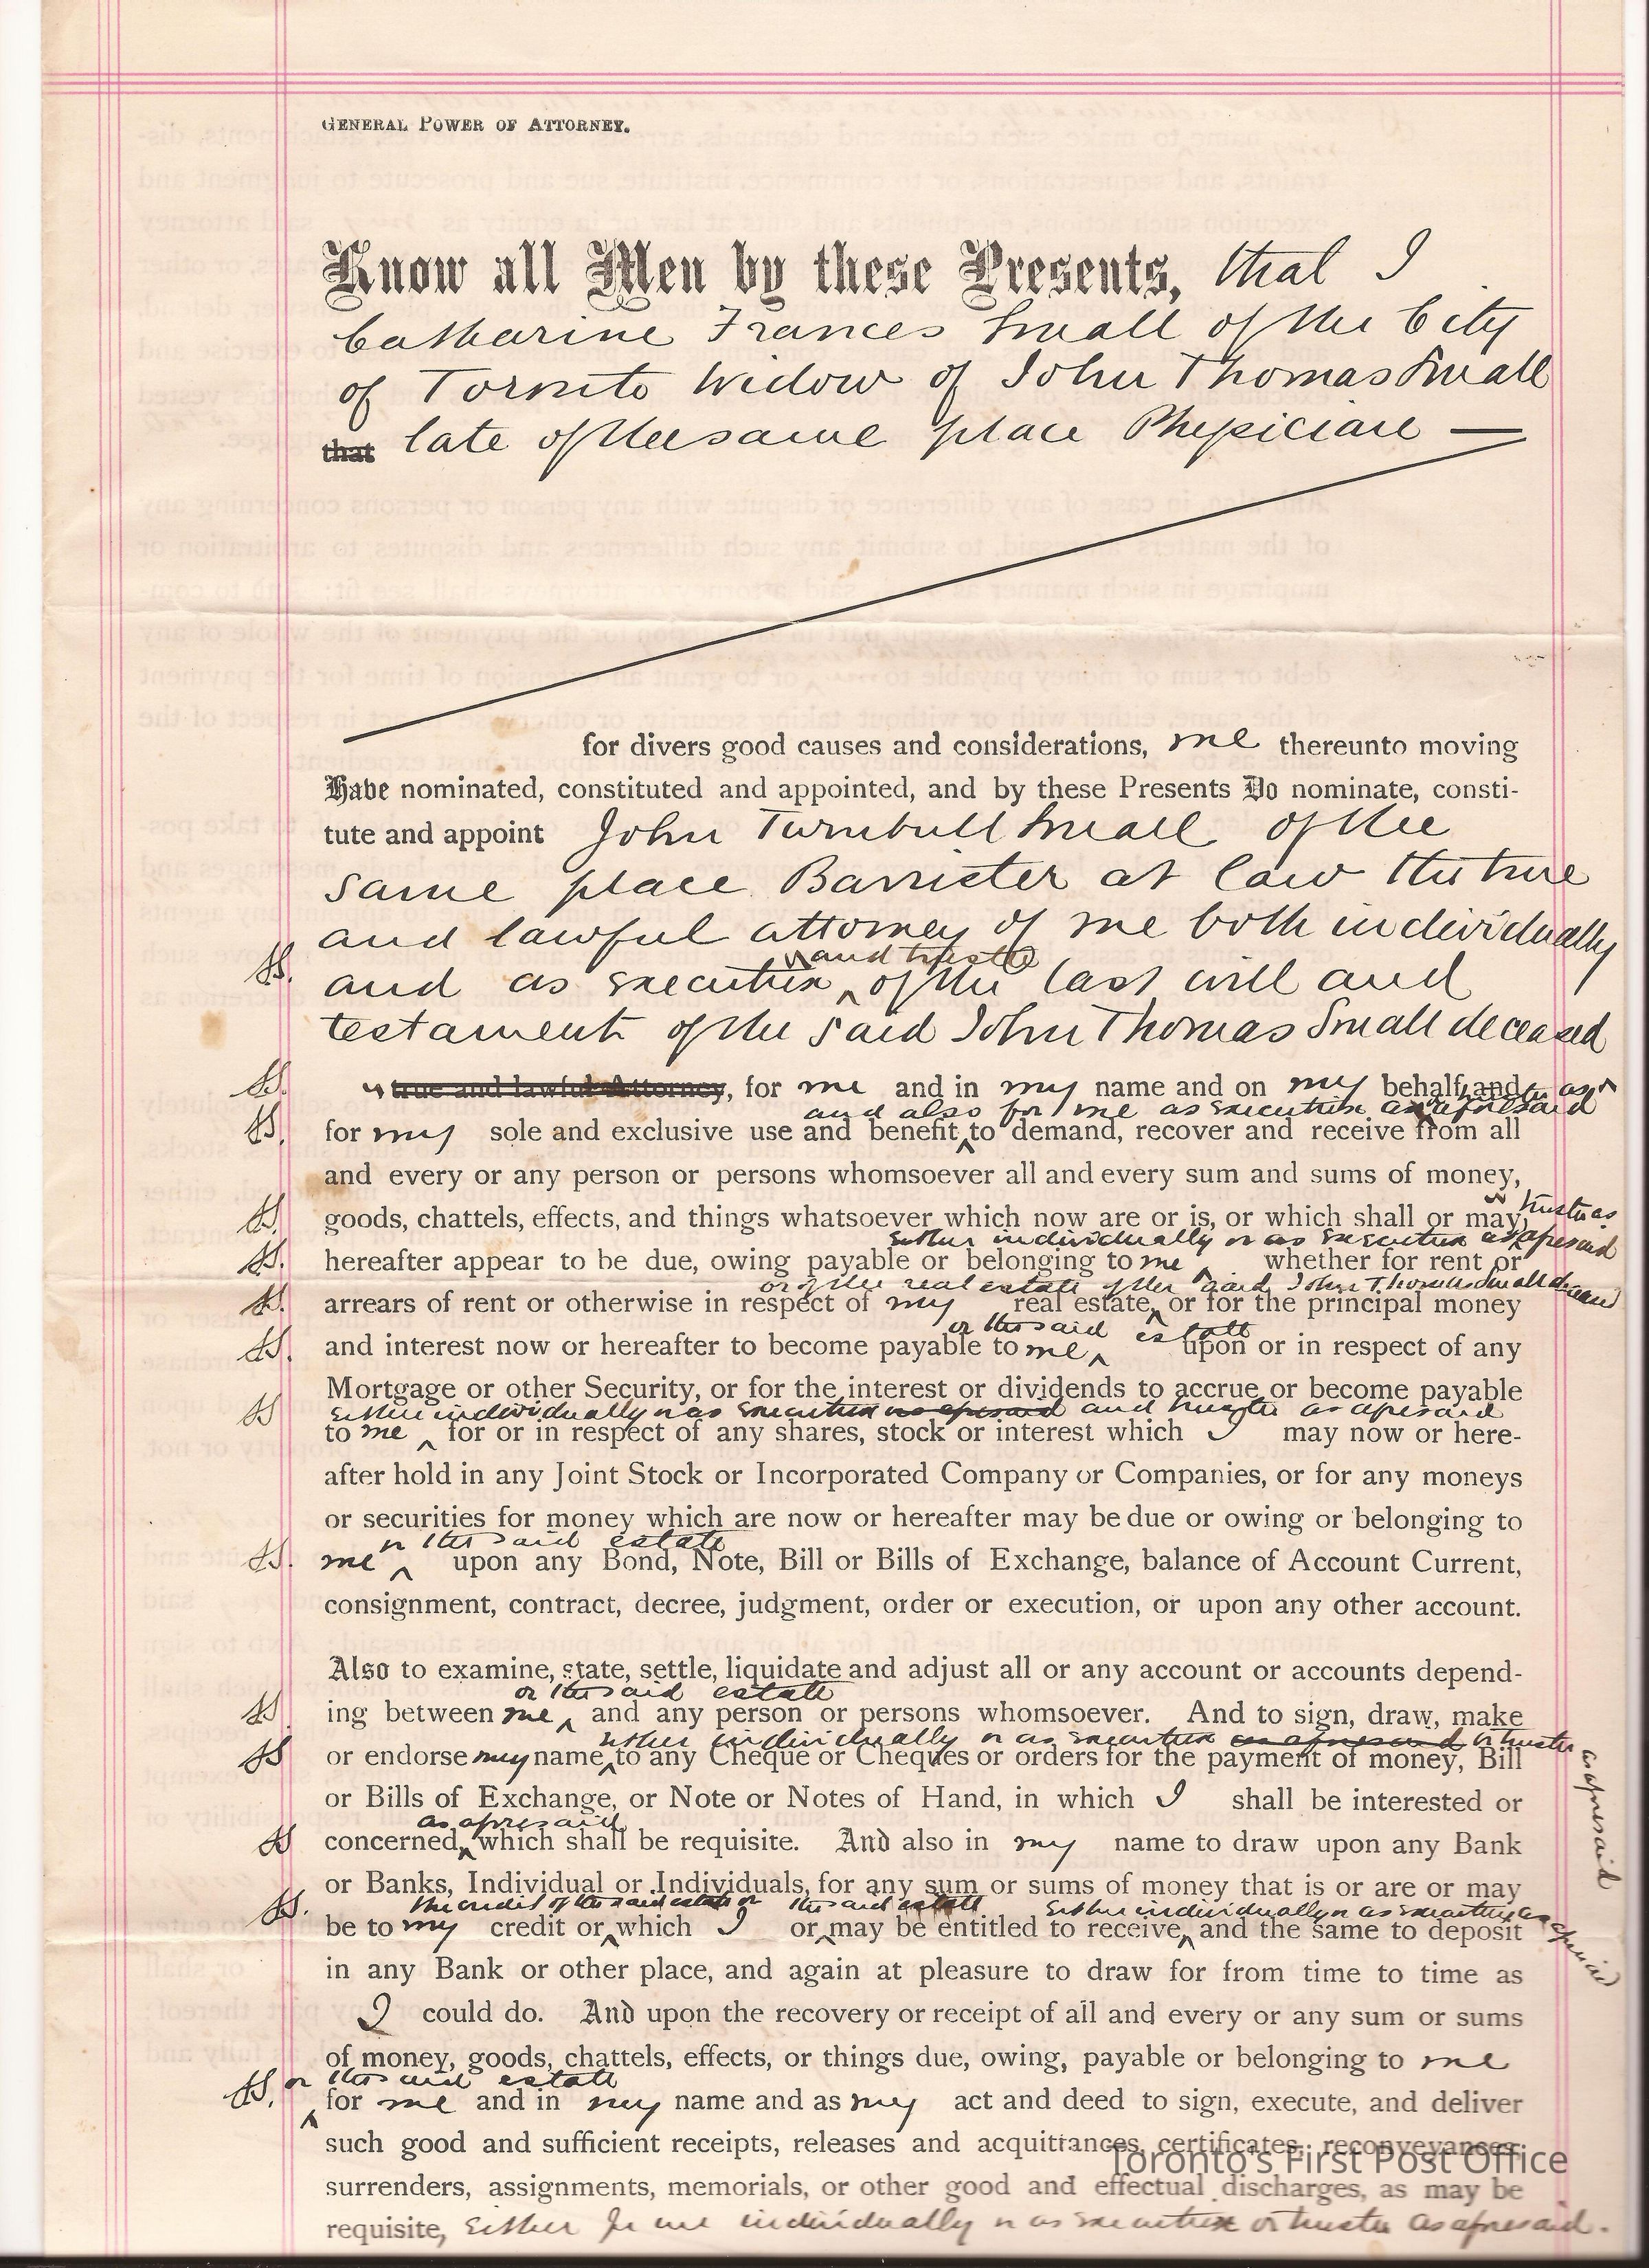 GENERAL POWER OF ATTORNEY.
Know all Men by these Presents, that I
Catharine Frances Small of the City
of Toronto Widow of John Thomas Small
that late of the same place Physician —
for divers good causes and considerations, me thereunto moving
Have nominated, constituted and appointed, and by these Presents Do nominate, consti-
tute and appoint John Turnbull Small of the
same place Barrister at law the true
and lawful attorney of me both individually
and trustee
and as executrix of the last will and
testament of the said John Thomas Small deceased
true and lawful Attorney, for me and in my name and on my behalf and
and also for me as executrix or trustee as aforesaid
for my sole and exclusive use and benefit to demand, recover and receive from all
and every or any person or persons whomsoever all and every sum and sums of money,
goods, chattels, effects, and things whatsoever which now are or is, or which shall or may,
either individually or as executrix or trustee as aforesaid
hereafter appear to be due, owing payable or belonging to me whether for rent or
or of the real estate of the said John Thomas Small deceased
arrears of rent or otherwise in respect of my real estate, or for the principal money
or the said estate
and interest now or hereafter to become payable to me, upon or in respect of any
Mortgage or other Security, or for the interest or dividends to accrue or become payable
either individually or as executrix as aforesaid and trustee as aforesaid
to me for or in respect of any shares, stock or interest which I may now or here-
after hold in any Joint Stock or Incorporated Company or Companies, or for any moneys
or securities for money which are now or hereafter may be due or owing or belonging to
or the said estate
me upon any Bond, Note, Bill or Bills of Exchange, balance of Account Current,
consignment, contract, decree, judgment, order or execution, or upon any other account.
Also to examine, state, settle, liquidate and adjust all or any account or accounts depend-
or the said estate
ing between me, and any person or persons whomsoever. And to sign, draw, make
either individually or as executrix as aforesaid or trustee as aforesaid
or endorse my name to any Cheque or Cheques or orders for the payment of money, Bill
or Bills of Exchange, or Note or Notes of Hand, in which I shall be interested or
as aforesaid
concerned, which shall be requisite. And also in my name to draw upon any Bank
or Banks, Individual or Individuals, for any sum or sums of money that is or are or may
the credit of the said estate or the said estate either individually or as executrix as aforesaid
be to my credit or which I or may be entitled to receive, and the same to deposit
in any Bank or other place, and again at pleasure to draw for from time to time as
I could do. And upon the recovery or receipt of all and every or any sum or sums
of money, goods, chattels, effects, or things due, owing, payable or belonging to me
or the said estate
for me and in my name and as my act and deed to sign, execute, and deliver
such good and sufficient receipts, releases and acquittances, certificates, reconveyances,
Toronto's First Post Office
surrenders, assignments, memorials, or other good and effectual discharges, as may be
requisite, either for me individually or as executrix or trustee as aforesaid.